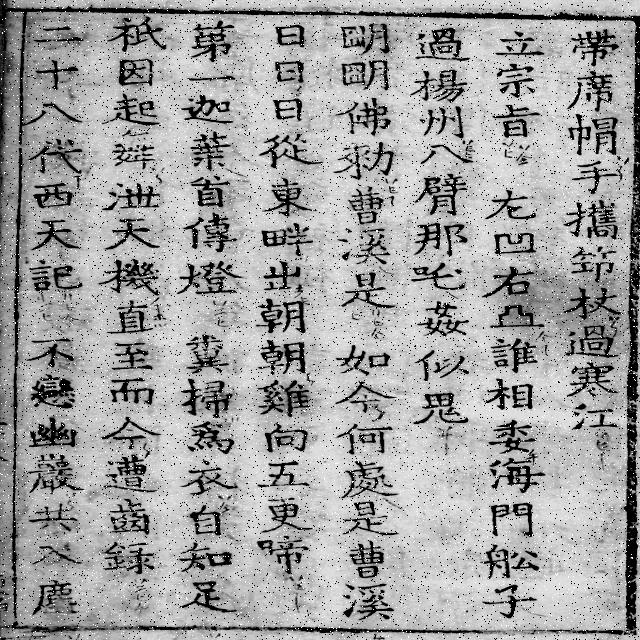 帶席帽手攜筇杖過寒江
立宗旨 左凹右凸誰相委海門舩子
過揚州八臂那吒姦似鬼
明明佛勑曹溪是 如今何處是曹溪
日日日從東畔出朝朝雞向五更啼
第一迦葉首傳燈 糞掃爲衣自知足
祇因起舞泄天機直至而今遭齒録
二十八代西天記 不變幽巖共入塵